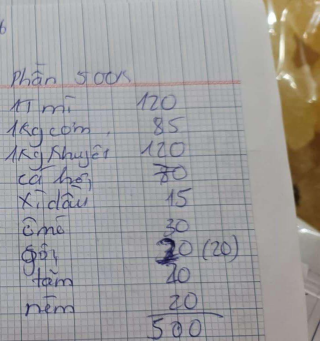 Phần 500K
1T mì 120
1Kg cơm 85
1Kg Khuyết 120
cá hồi 70
xì dầu 15
ô mê 30
gói 20 (20)
tăm 20
nêm 20
500